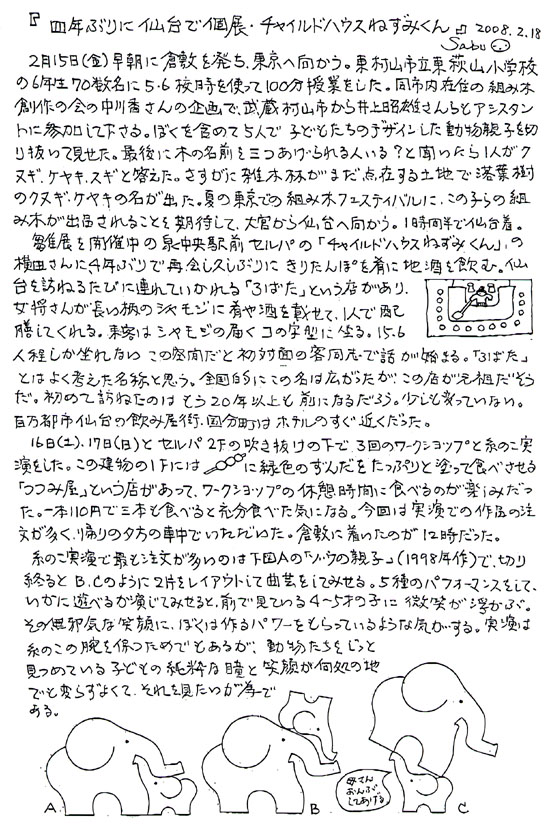 『四年ぶりに仙台で個展・チャイルドハウスねずみくん』 2008.2.18
Sabu
2月15日(金)早朝に倉敷を発ち、東京へ向かう。東村山市立東萩山小学校
の6年生70数名に5・6校時を使って100分授業をした。同市内在住の組み木
創作の会の中川香さんの企画で、武蔵村山市から井上昭雄さんらとアシスタン
トに参加して下さる。ぼくを含めて5人で子どもたちのデザインした動物親子を切
り抜いて見せた。最後に木の名前を三つあげられる人いる?と聞いたら1人がク
ヌギ、ケヤキ、スギと答えた。さすがに雑木林がまだ点在する土地で落葉樹
のクヌギ、ケヤキの名が出た。夏の東京での組み木フェスティバルに、この子らの組
み木が出品されることを期待して、大宮から仙台へ向かう。1時間半で仙台着。
雛展を開催中の泉中央駅前セルバの「チャイルドハウスねずみくん」の
横田さんに4年ぶりで再会し久しぶりにきりたんぽを肴に地酒を飲む。仙
台を訪ねるたびに連れていかれる「ろばた」という店があり、
女将さんが長い柄のシャモジに肴や酒を載せて、1人で配
膳してくれる。来客はシャモジの届くコの字型に坐る。15.6
人程しか坐れないこの空間だと初対面の客同志で話が始まる。「ろばた」
とはよく考えた名称と思う。全国的にこの名は広がったが、この店が元祖だそう
だ。初めて訪ねたのはもう20年以上も前になるだろう。少しも変っていない。
百万都市仙台の飲み屋街、国分町はホテルのすぐ近くだった。
16日(土)、17日(日)とセルバ2Fの吹き抜けの下で、3回のワークショップと糸のこ実
演をした。この建物の1Fには に緑色のずんだをたっぷりと塗って食べさせる
「つつみ屋」という店があって、ワークショップの休憩時間に食べるのが楽しみだっ
た。一本110円で三本も食べると充分食べた気になる。今回は実演での作品の注
文が多く、帰りの夕方の車中でいただいた。倉敷に着いたのが12時だった。
糸のこ実演で最も注文が多いのは下図Aの「ゾウの親子」(1998年作)で、切り
終るとB、Cのように2片をレイアウトして曲芸をしてみせる。5種のパフォーマンスをして、
いかに遊べるか演じてみせると、前で見ている4~5才の子に微笑が浮かぶ。
その無邪気な笑顔に、ぼくは作るパワーをもらっているような気がする。実演は
糸のこの腕を保つためでもあるが、動物たちをじっと
見つめている子どもの純粋な瞳と笑顔が何処の地
でも変らずよくて、それを見たいが為で
ある。
A
B
母さん
おんぶ
してあげる
C